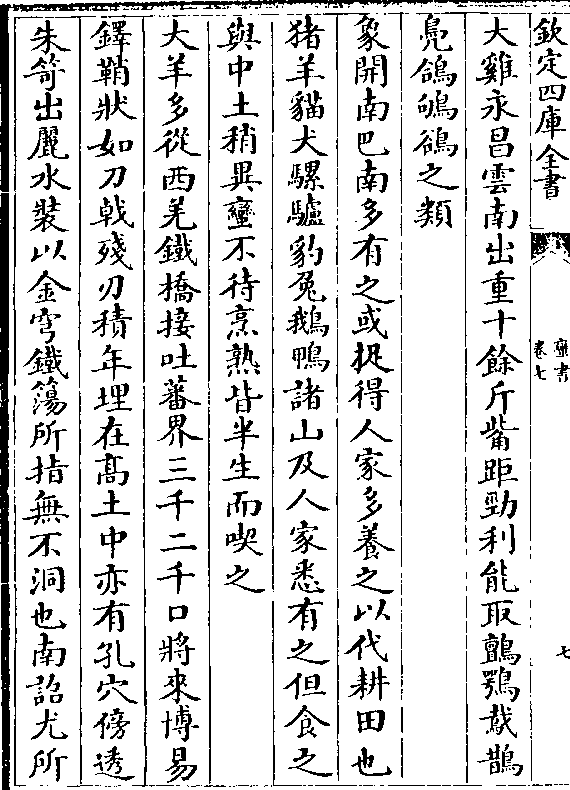 欽定四庫全書
蠻書
卷七
七
大雞永昌雲南出重十餘斤觜距勁利能取鸇鶚䳍鵲
鳬鴿鴝鵒之類
象開南巴南多有之或捉得人家多養之以代耕田也
猪羊貓犬騾驢豹兔鵝鴨諸山及人家悉有之但食之
與中土稍異蠻不待烹熟皆半生而喫之
大羊多從西羌鐵橋接吐蕃界三千二千口將來博易
鐸鞘狀如刀戟殘刃積年埋在髙土中亦有孔穴傍透
朱笴出麗水裝以金穹鐵簜所指無不洞也南詔尤所